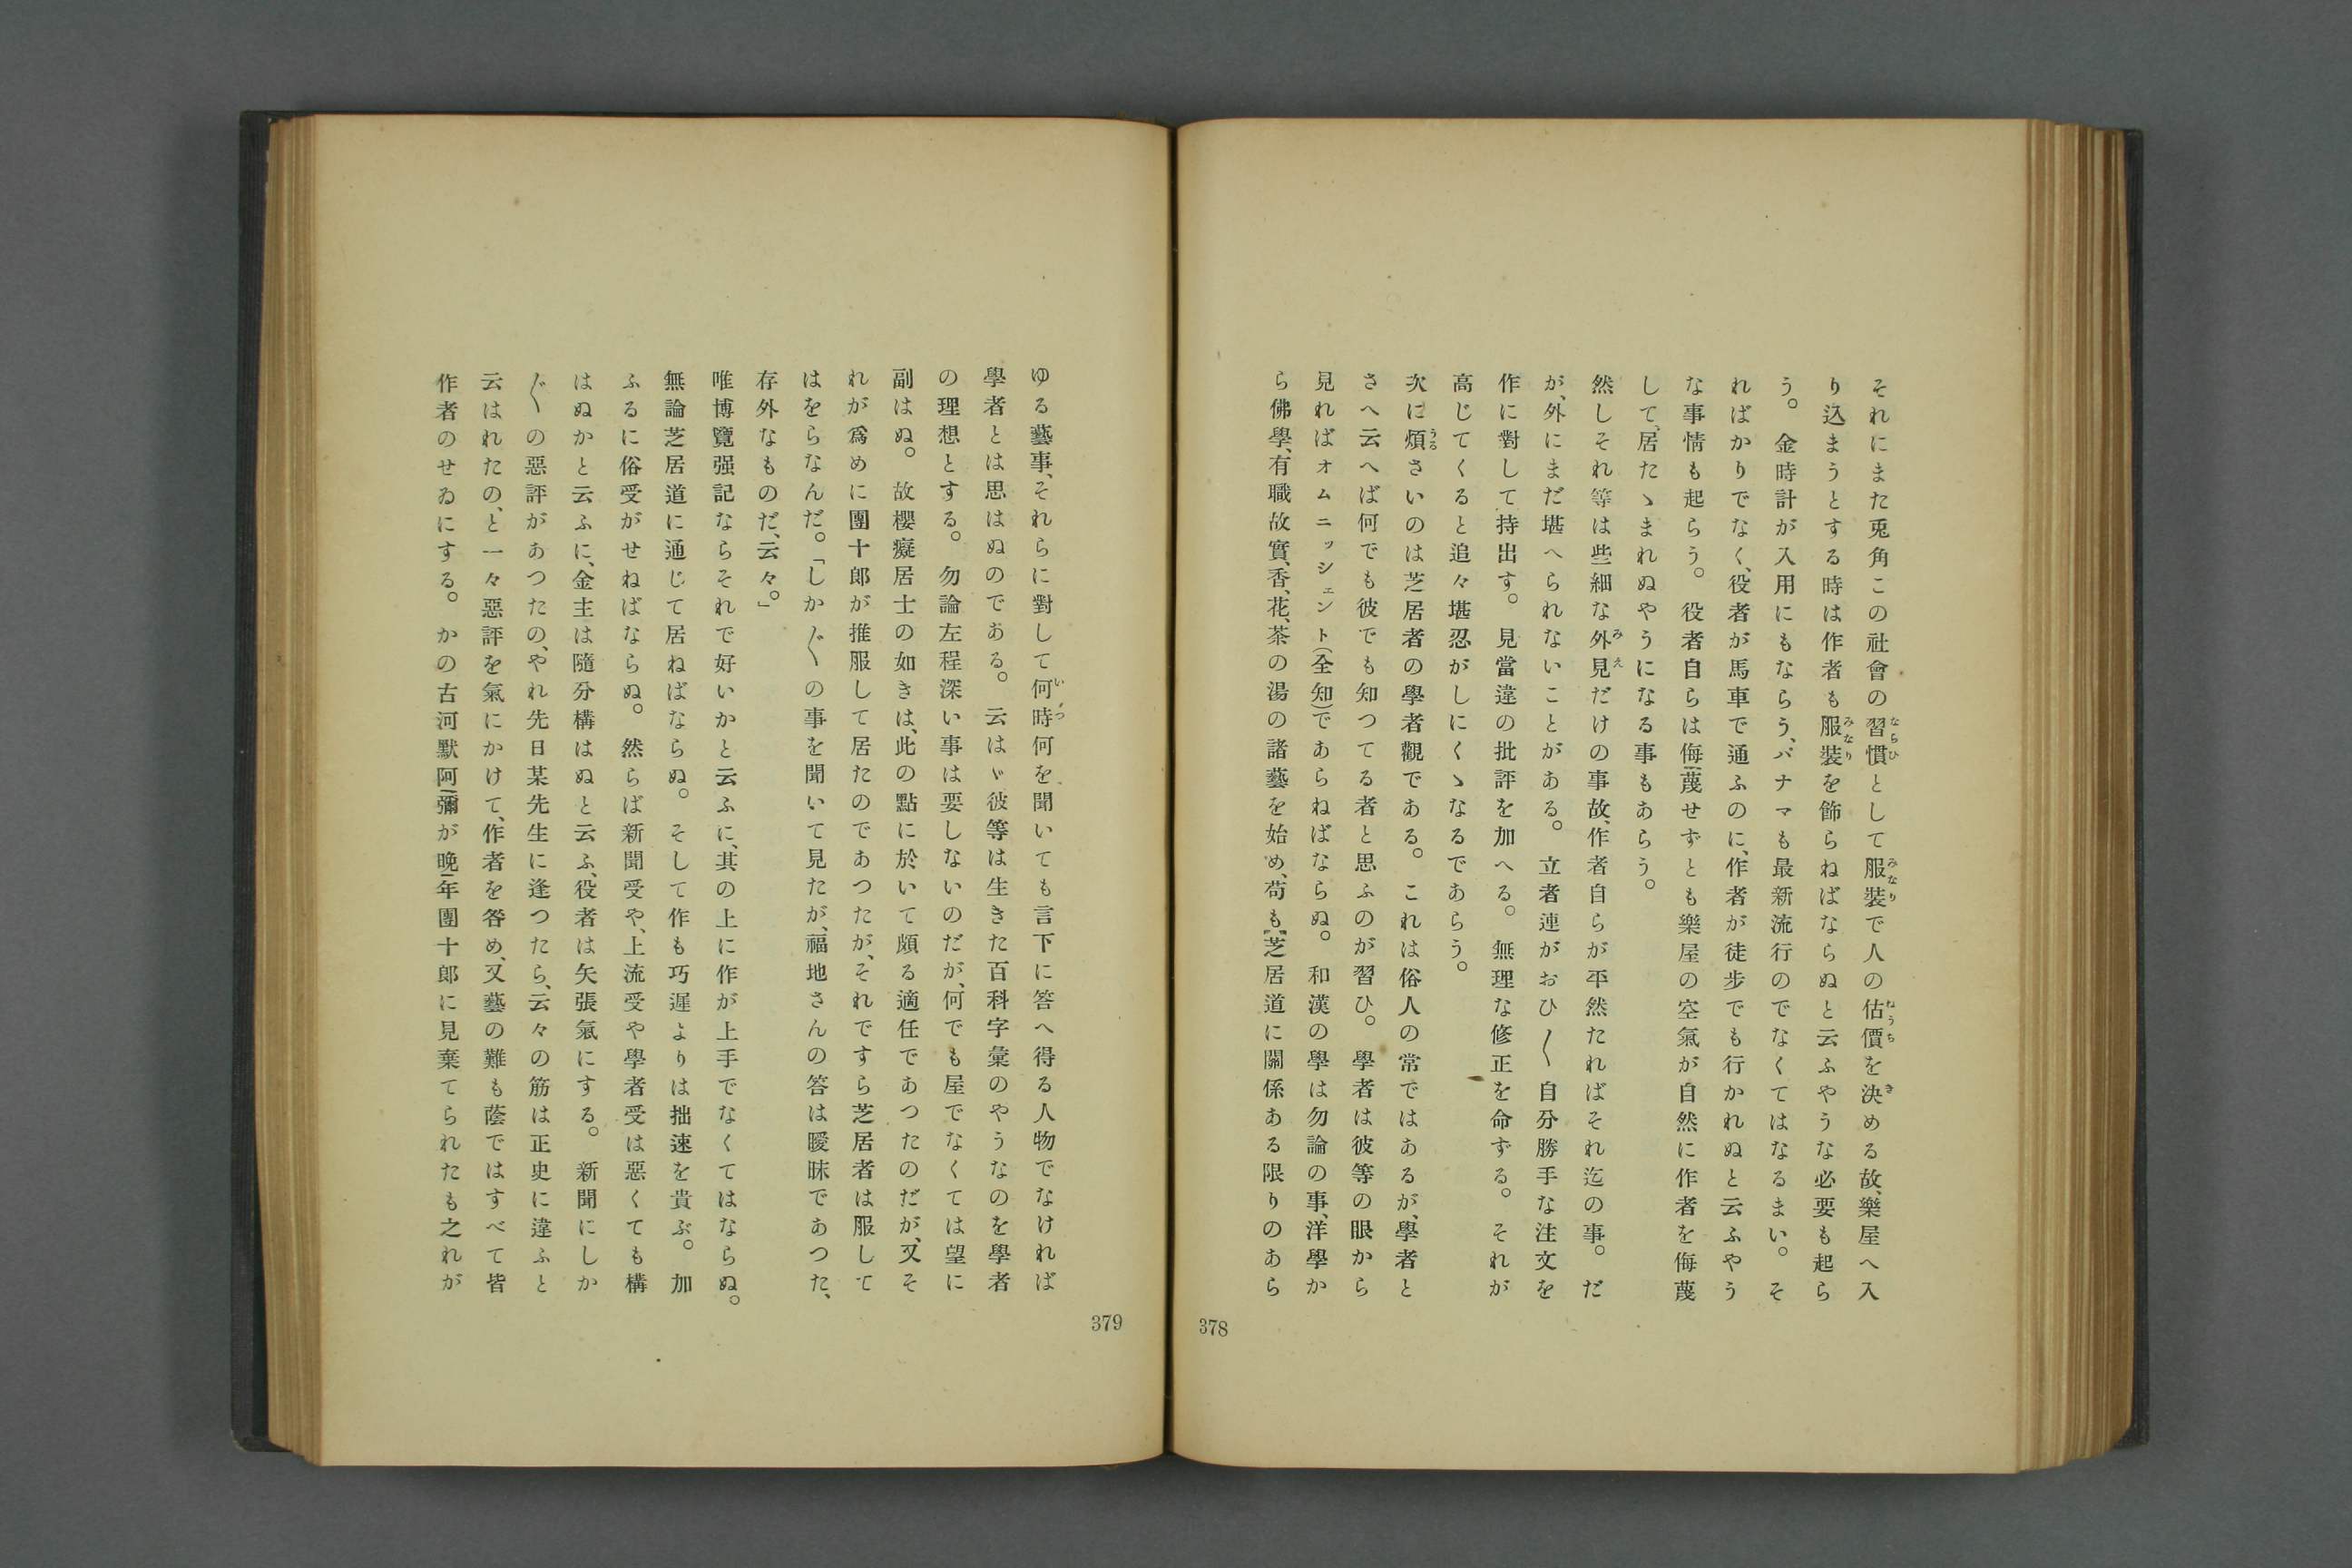 それにまた兎角この社會の習慣として服裝で人の估價を決める故、樂屋へ入
り込まうとする時は作者も服裝を飾らねばならぬと云ふやうな必要も起ら
う。金時計が入用にもならう、パナマも最新流行のでなくてはなるまい。そ
ればかりでなく、役者が馬車で通ふのに、作者が徒步でも行かれぬと云ふやう
な事情も起らう。役者自らは侮蔑せずとも樂屋の空氣が自然に作者を侮蔑
して、居たゝまれぬやうになる事もあらう。
然しそれ等は些細な外見だけの事故、作者自らが平然たればそれ迄の事。だ
が、外にまだ堪へられないことがある。立者連がおひ〱自分勝手な注文を
作に對して持出す。見當違の批評を加へる。無理な修正を命ずる。それが
高じてくると追々堪忍がしにくゝなるであらう。
次に煩さいのは芝居者の學者觀である。これは俗人の常ではあるが、學者と
さへ云へば何でも彼でも知つてる者と思ふのが習ひ。學者は彼等の眼から
見ればオムニッシェント(全知)であらねばならぬ。和漢の學は勿論の事、洋學か
ら佛學、有職故實、香、花、茶の湯の諸藝を始め、苟も芝居道に關係ある限りのあら
378
ゆる藝事、それらに對して何時何を聞いても言下に答へ得る人物でなければ
學者とは思はぬのである。云はゞ彼等は生きた百科字彙のやうなのを學者
の理想とする。勿論左程深い事は要しないのだが、何でも屋でなくては望に
副はぬ。故櫻癡居士の如きは、此の點に於いて頗る適任であつたのだが、又そ
れが爲めに團十郎が推服して居たのであつたが、それですら芝居者は服して
はをらなんだ。「しか〲の事を聞いて見たが、福地さんの答は曖昧であつた、
存外なものだ、云々。」
唯博覽强記ならそれで好いかと云ふに、其の上に作が上手でなくてはならぬ。
無論芝居道に通じて居ねばならぬ。そして作も巧遲よりは拙速を貴ぶ。加
ふるに俗受がせねばならぬ。然らば新聞受や、上流受や學者受は惡くても構
はぬかと云ふに、金主は隨分構はぬと云ふ、役者は矢張氣にする。新聞にしか
〲の惡評があつたの、やれ先日某先生に逢つたら、云々の筋は正史に違ふと
云はれたの、と一々惡評を氣にかけて、作者を咎め、又藝の難も蔭ではすべて皆
作者のせゐにする。かの古河默阿彌が晩年團十郎に見棄てられたも之れが
379